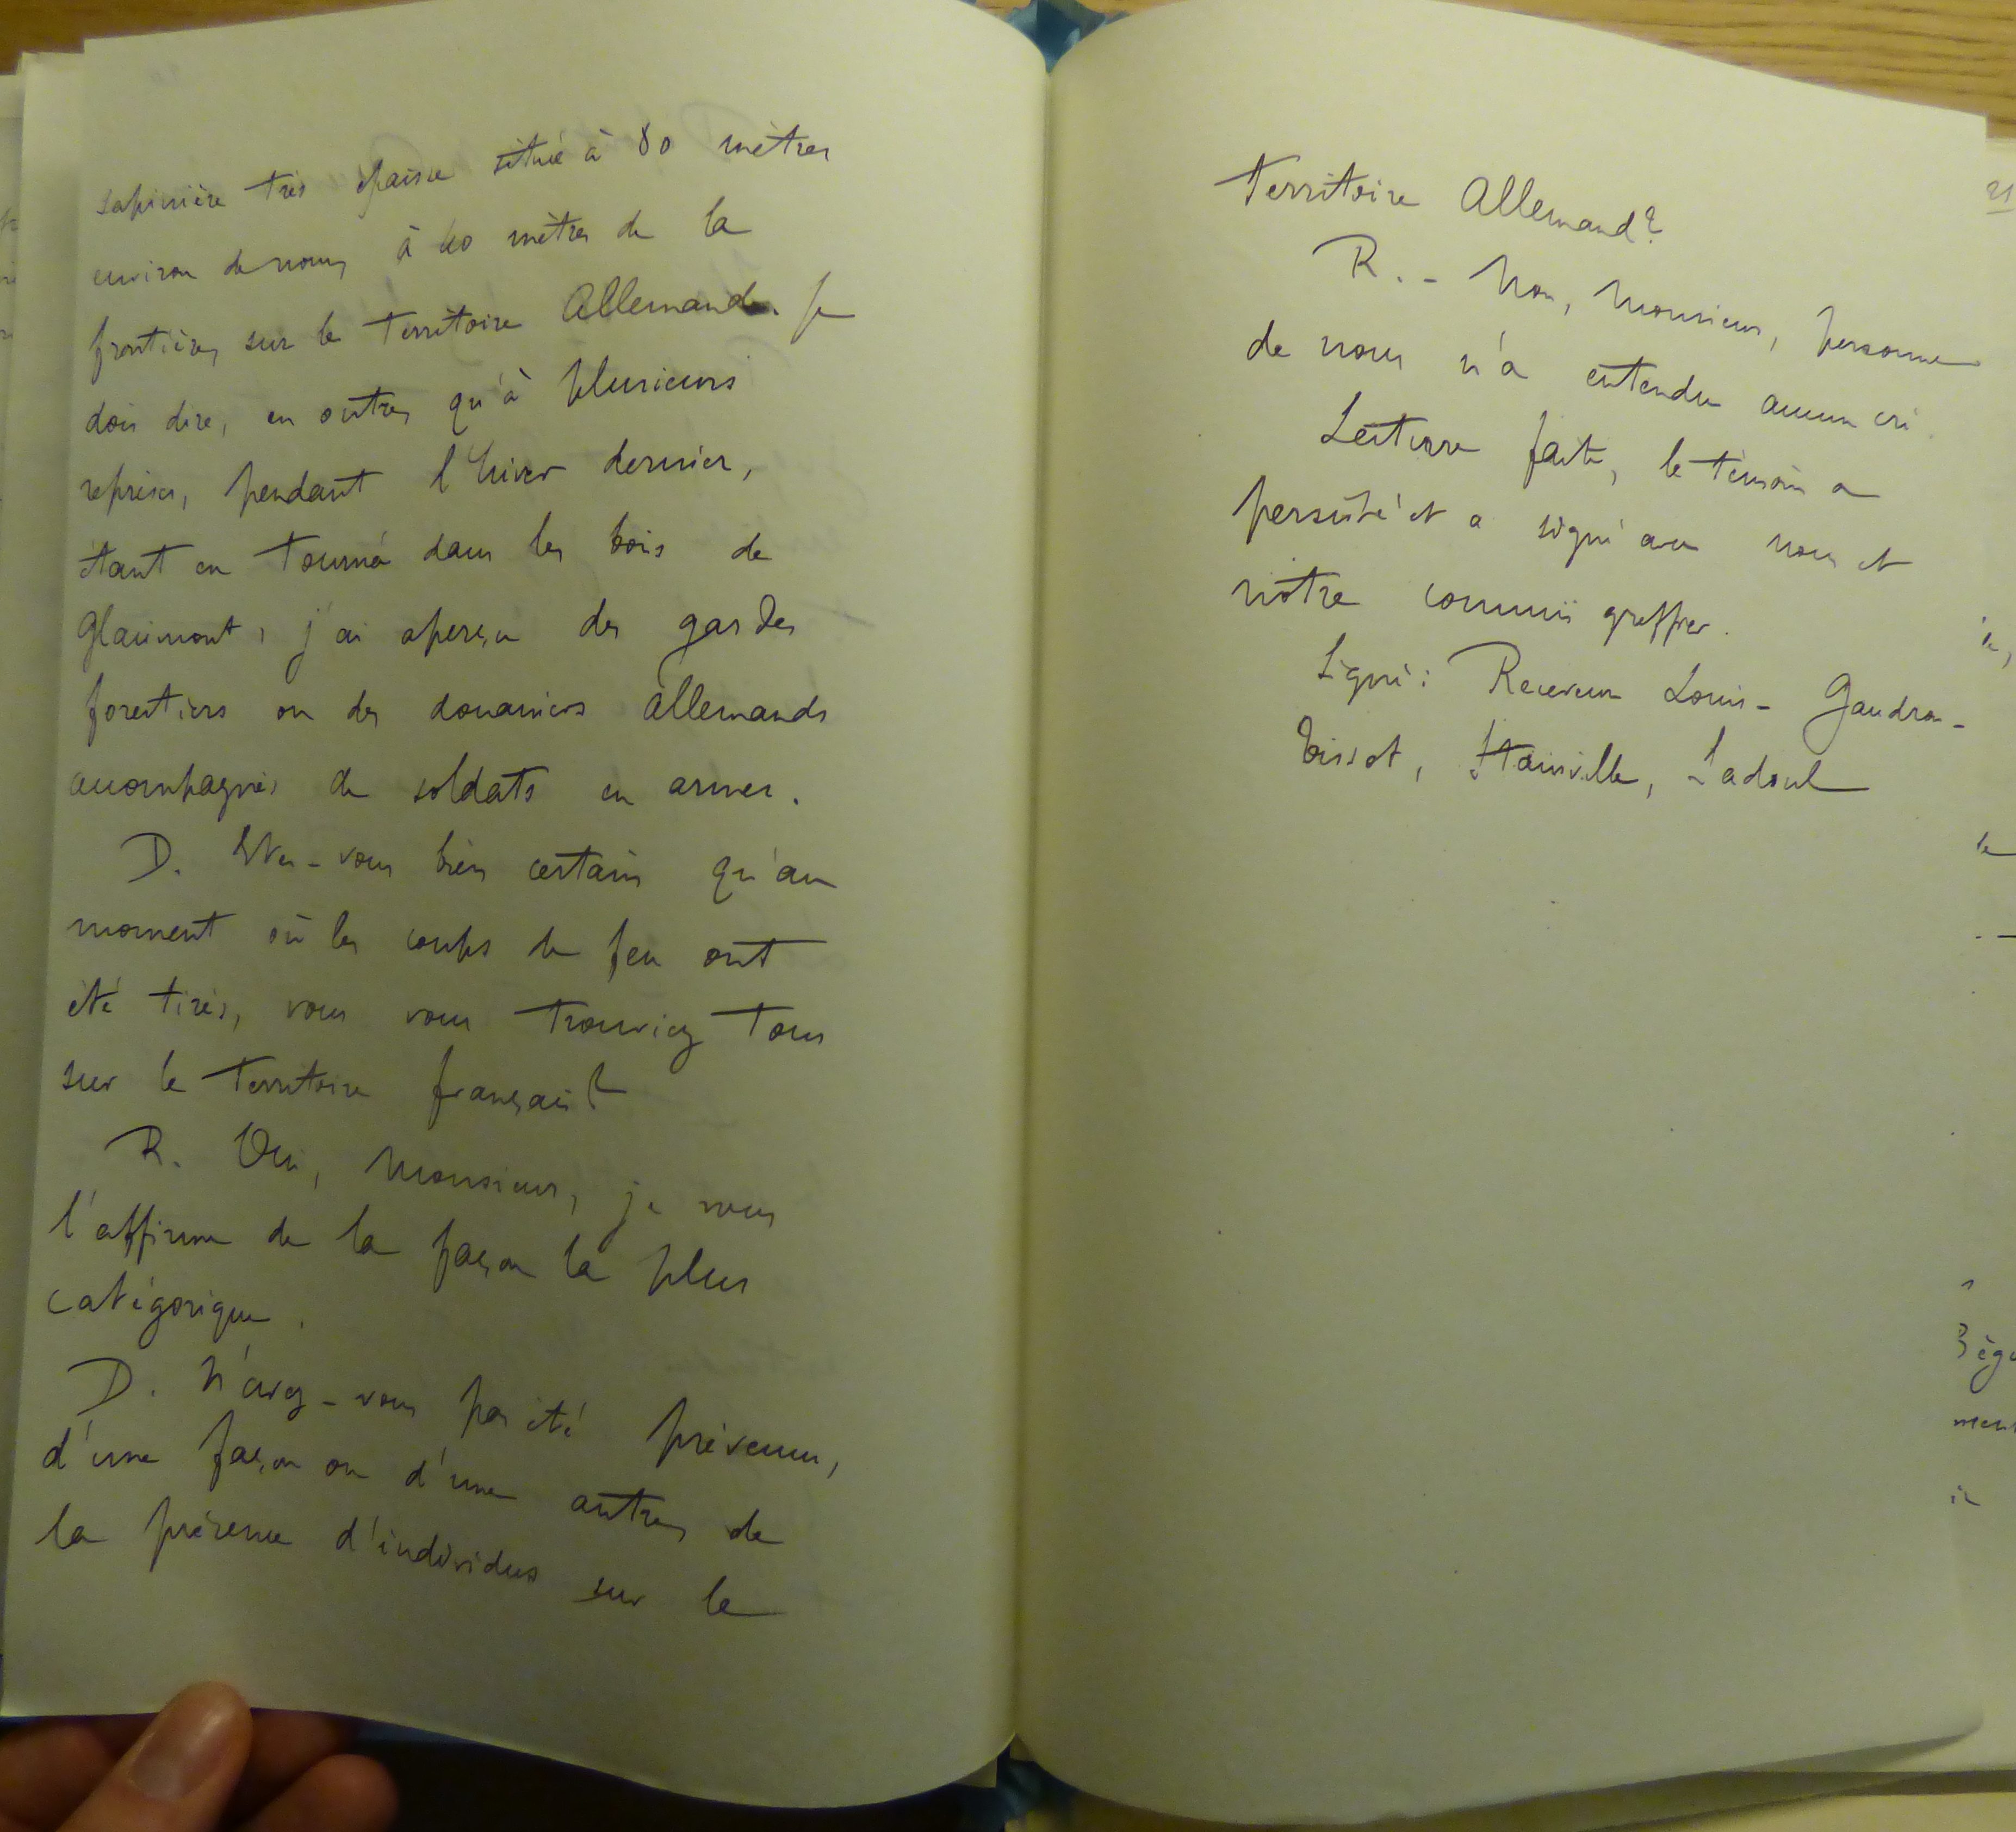 sapinière très épaisse située à 80 mètres
environ de nous, à 40 mètres de la
frontière, sur le territoire Allemand. Je
dois dire, en outre, qu'à plusieurs
reprises, pendant l'hiver dernier,
étant en tournée dans les bois de
Glaimont, j'ai aperçu des gardes
forestiers ou des douaniers allemands
accompagnés de soldats en armes.
D. Etes-vous bien certain qu'au
moment où les coups de feu ont
été tirés, vous vous trouviez tous
sur le territoire français?
R. Oui, Monsieur, je vous
l'affirme de la façon la plus
catégorique.
D. N'avez-vous pas été prévenu,
d'une façon ou d'une autre, de
la présence d'individus sur le
territoire Allemand?
R. - Non, Monsieur, personne
de nous n'a entendu aucun cri.
Lecture faite, le témoin a
persisté et a signé avec nous et
notre commis greffier.
Signé: Receveur Louis - Gaudron -
Tissot, Stainville, Sadoul
21